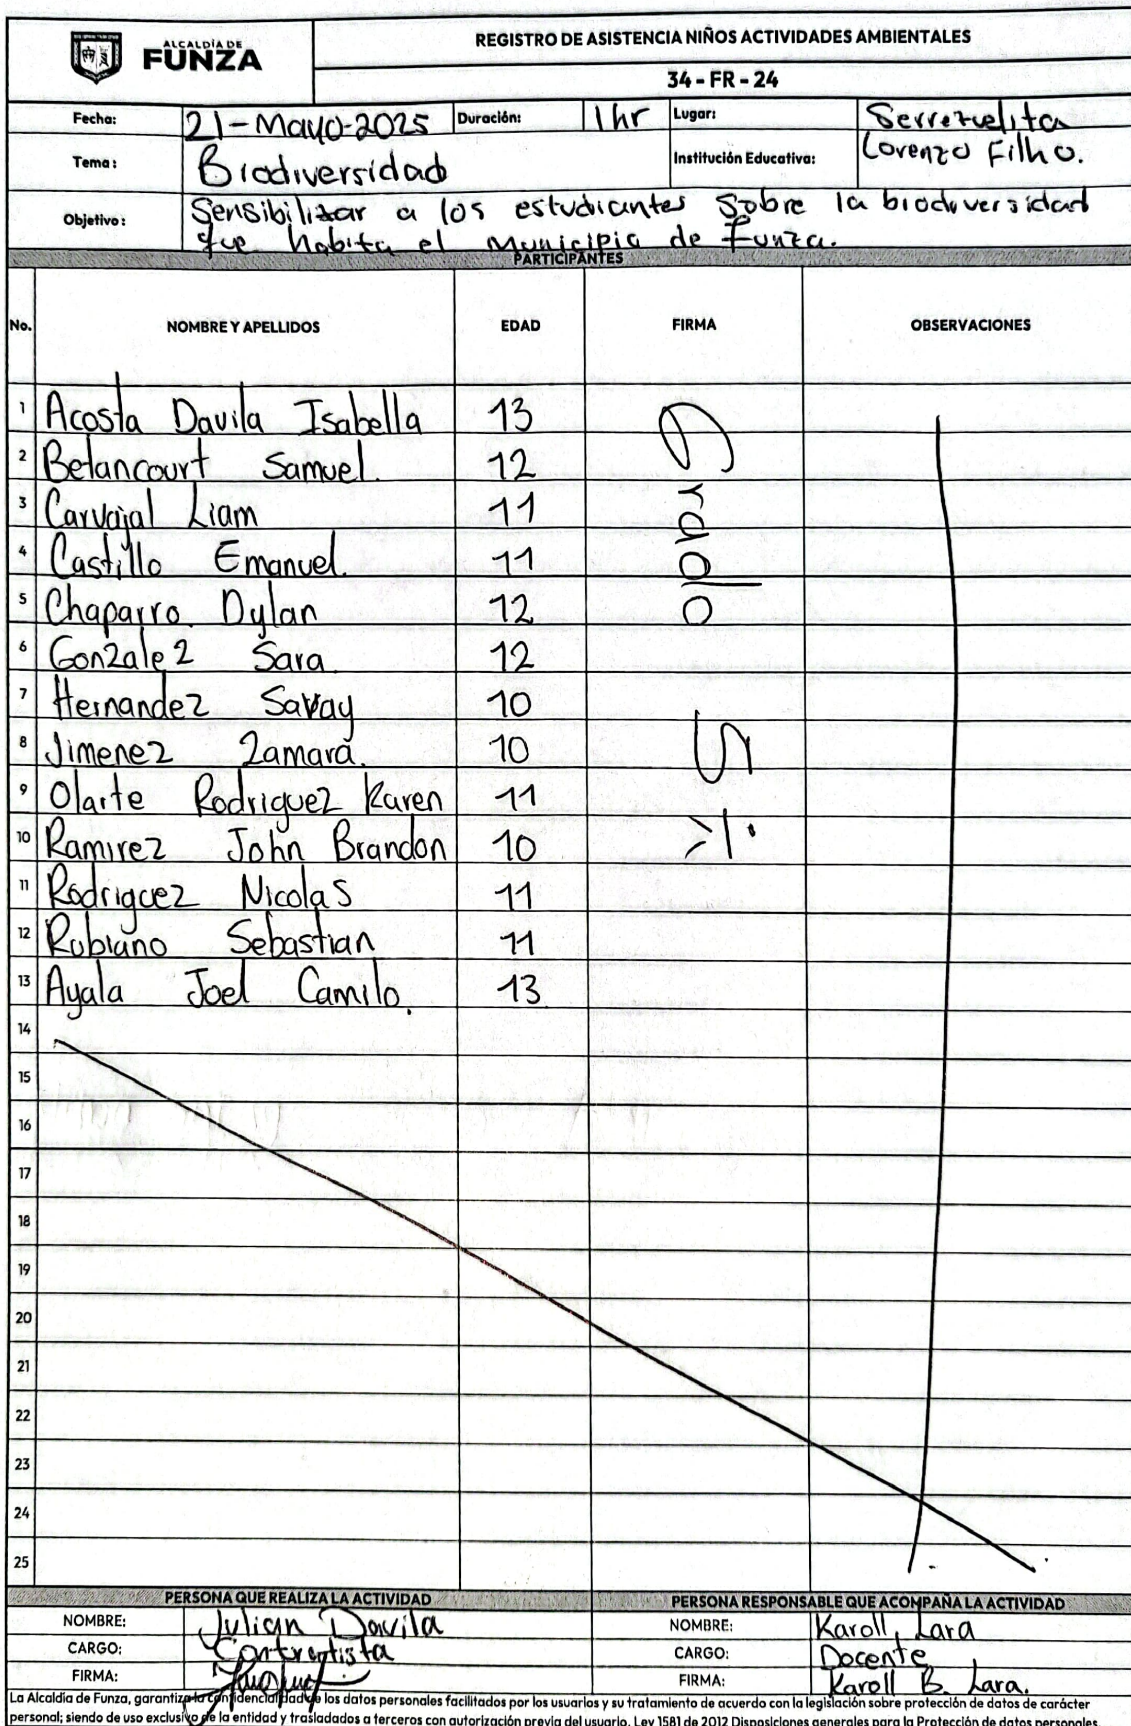 ALCALDÍA DE
FUNZA
REGISTRO DE ASISTENCIA NIÑOS ACTIVIDADES AMBIENTALES
34 - FR - 24
Fecha: 21-Mayo-2025 Duración: 1hr Lugar: Serrezuelita
Tema: Biodiversidad Institución Educativa: Lorenzo Filho.
Objetivo: Sensibilizar a los estudiantes sobre la biodiversidad
que habita el municipio de Funza.
PARTICIPANTES
No. NOMBRE Y APELLIDOS EDAD FIRMA OBSERVACIONES
1 Acosta Davila Isabella 13
2 Betancourt Samuel. 12
3 Carvajal Liam 11
4 Castillo Emanuel. 11
5 Chaparro Dylan 12
6 Gonzalez Sara 12
7 Hernandez Saray 10
8 Jimenez Zamara. 10
9 Olarte Rodriguez Karen 11
10 Ramirez John Brandon 10
11 Rodriguez Nicolas 11
12 Rubiano Sebastian 11
13 Ayala Joel Camilo. 13
Grado 5
14
15
16
17
18
19
20
21
22
23
24
25
PERSONA QUE REALIZA LA ACTIVIDAD PERSONA RESPONSABLE QUE ACOMPAÑA LA ACTIVIDAD
NOMBRE: Julian Davila NOMBRE: Karoll Lara
CARGO: Contratista CARGO: Docente
FIRMA: FIRMA: Karoll B. Lara.
La Alcaldía de Funza, garantiza la confidencialidad de los datos personales facilitados por los usuarios y su tratamiento de acuerdo con la legislación sobre protección de datos de carácter
personal; siendo de uso exclusivo de la entidad y trasladados a terceros con autorización previa del usuario. Ley 1581 de 2012 Disposiciones generales para la Protección de datos personales